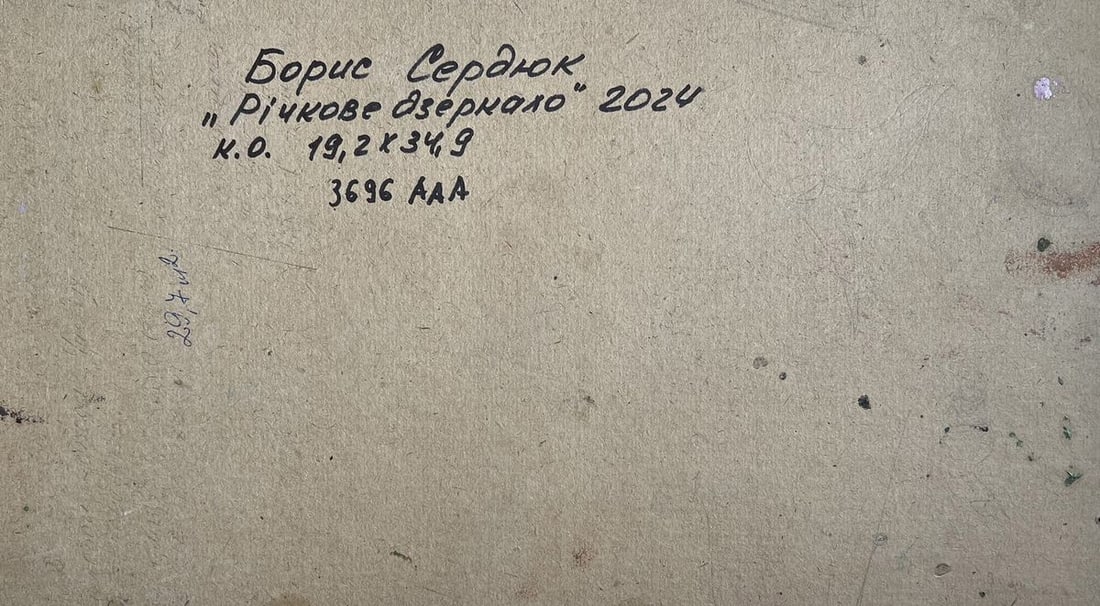 Борис Сердюк
„Річкове дзеркало" 2024
к.о. 19,2х34,9
3696 ААА
29,7м²